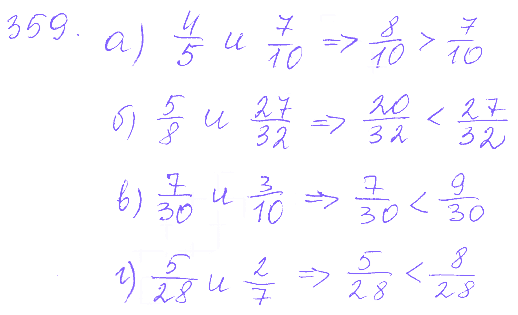 359. а) 4/5 и 7/10 => 8/10 > 7/10
б) 5/8 и 27/32 => 20/32 < 27/32
в) 7/30 и 3/10 => 7/30 < 9/30
г) 5/28 и 2/7 => 5/28 < 8/28